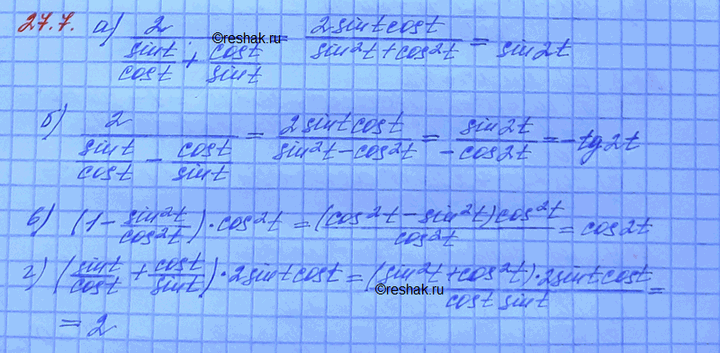 27.7. а) 2 / (sint/cost + cost/sint) = 2sintcost / (sin²t + cos²t) = sin2t
©reshak.ru
б) 2 / (sint/cost − cost/sint) = 2sintcost / (sin²t − cos²t) = sin2t / −cos2t = −tg2t
в) (1 − sin²t/cos²t) · cos²t = (cos²t − sin²t)cos²t / cos²t = cos2t
г) (sint/cost + cost/sint) · 2sintcost = (sin²t + cos²t) · 2sintcost / cost sint =
©reshak.ru
= 2